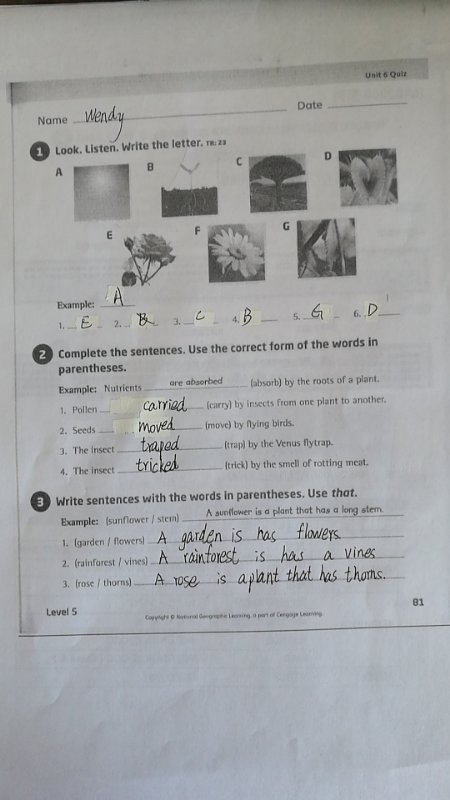 Unit 6 Quiz
Name Wendy Date
1 Look. Listen. Write the letter. TR: 23
A B C D
E F G
Example: A
1. E 2. B 3. C 4. B 5. G 6. D
2 Complete the sentences. Use the correct form of the words in
parentheses.
Example: Nutrients are absorbed (absorb) by the roots of a plant.
1. Pollen carried (carry) by insects from one plant to another.
2. Seeds moved (move) by flying birds.
3. The insect traped (trap) by the Venus flytrap.
4. The insect tricked (trick) by the smell of rotting meat.
3 Write sentences with the words in parentheses. Use that.
Example: (sunflower / stem) A sunflower is a plant that has a long stem.
1. (garden / flowers) A garden is has flowers.
2. (rainforest / vines) A rainforest is has a vines
3. (rose / thorns) A rose is a plant that has thorns.
Level 5
Copyright © National Geographic Learning, a part of Cengage Learning
81